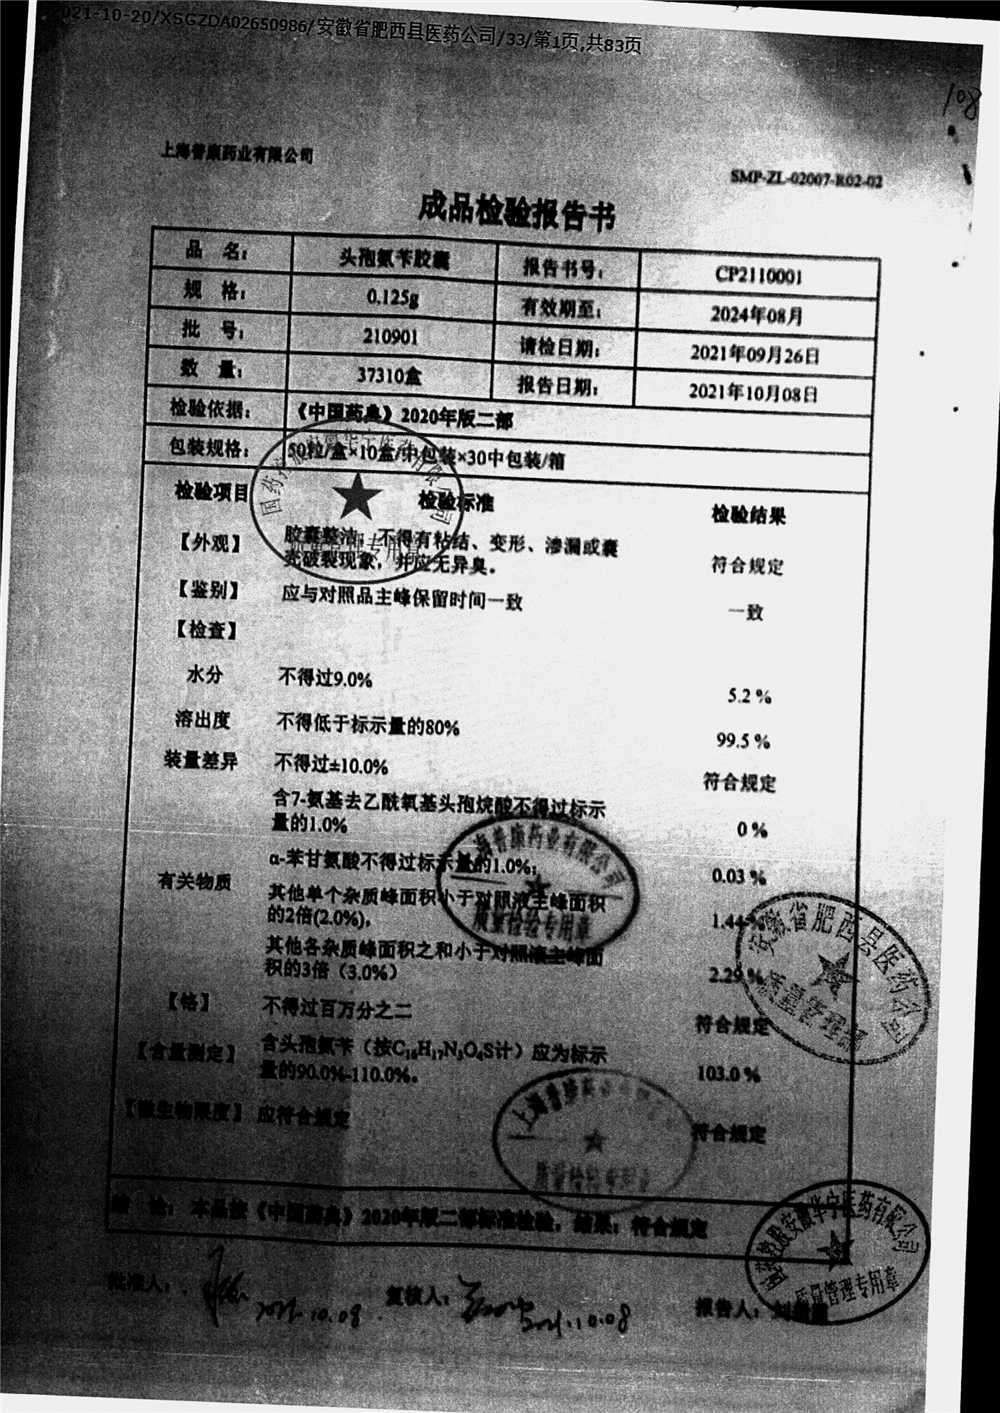 021-10-20/XSGZDA02650986/安徽省肥西县医药公司/33/第1页,共83页
108
上海普康药业有限公司
SMP-ZL-02007-R02-02
成品检验报告书
品 名： 头孢氨苄胶囊 报告书号： CP2110001
规 格： 0.125g 有效期至： 2024年08月
批 号： 210901 请检日期： 2021年09月26日
数 量： 37310盒 报告日期： 2021年10月08日
检验依据： 《中国药典》2020年版二部
包装规格： 50粒/盒×10盒/中包装×30中包装/箱
检验项目 检验标准 检验结果
【外观】 胶囊整洁，不得有粘结、变形、渗漏或囊
壳破裂现象，并应无异臭。 符合规定
【鉴别】 应与对照品主峰保留时间一致 一致
【检查】
水分 不得过9.0% 5.2 %
溶出度 不得低于标示量的80% 99.5 %
装量差异 不得过±10.0% 符合规定
有关物质
含7-氨基去乙酰氧基头孢烷酸不得过标示
量的1.0% 0 %
α-苯甘氨酸不得过标示量的1.0%； 0.03 %
其他单个杂质峰面积小于对照液主峰面积
的2倍(2.0%), 1.44 %
其他各杂质峰面积之和小于对照液主峰面
积的3倍（3.0%） 2.29 %
【铬】 不得过百万分之二 符合规定
【含量测定】 含头孢氨苄（按C16H17N3O4S计）应为标示
量的90.0%-110.0%。 103.0 %
【微生物限度】 应符合规定 符合规定
结 论： 本品按《中国药典》2020年版二部标准检验，结果：符合规定
批准人： 2021.10.08 复核人： 2021.10.08 报告人：
国药控股安徽华宁医药有限公司
质量管理专用章
上海普康药业有限公司
质量检验专用章
安徽省肥西县医药公司
质量管理部
上海普康药业有限公司
质量检验专用章
国药控股安徽华宁医药有限公司
质量管理专用章